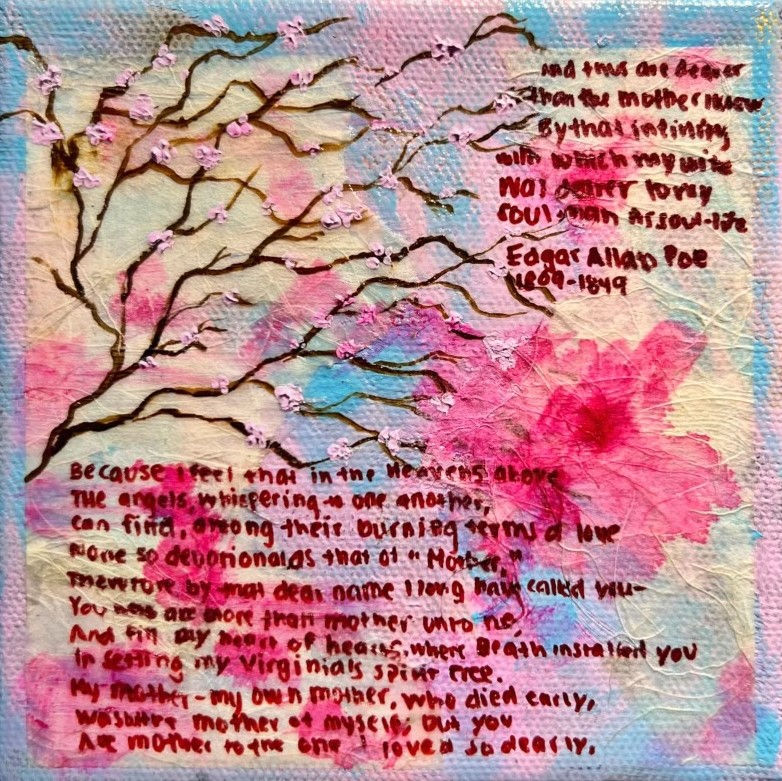 And thus are dearer
than the mother I knew
By that infinity
with which my wife
Was dearer to my
soul than its soul-life
Edgar Allan Poe
1809-1849
Because I feel that in the Heavens above
The angels, whispering to one another,
can find, among their burning terms of love
None so devotional as that of "Mother,"
Therefore by that dear name I long have called you-
You who are more than mother unto me,
And fill my heart of hearts, where Death installed you
In setting my Virginia's spirit free.
My mother-my own mother, who died early,
was but the mother of myself; but you
Are mother to the one I loved so dearly,